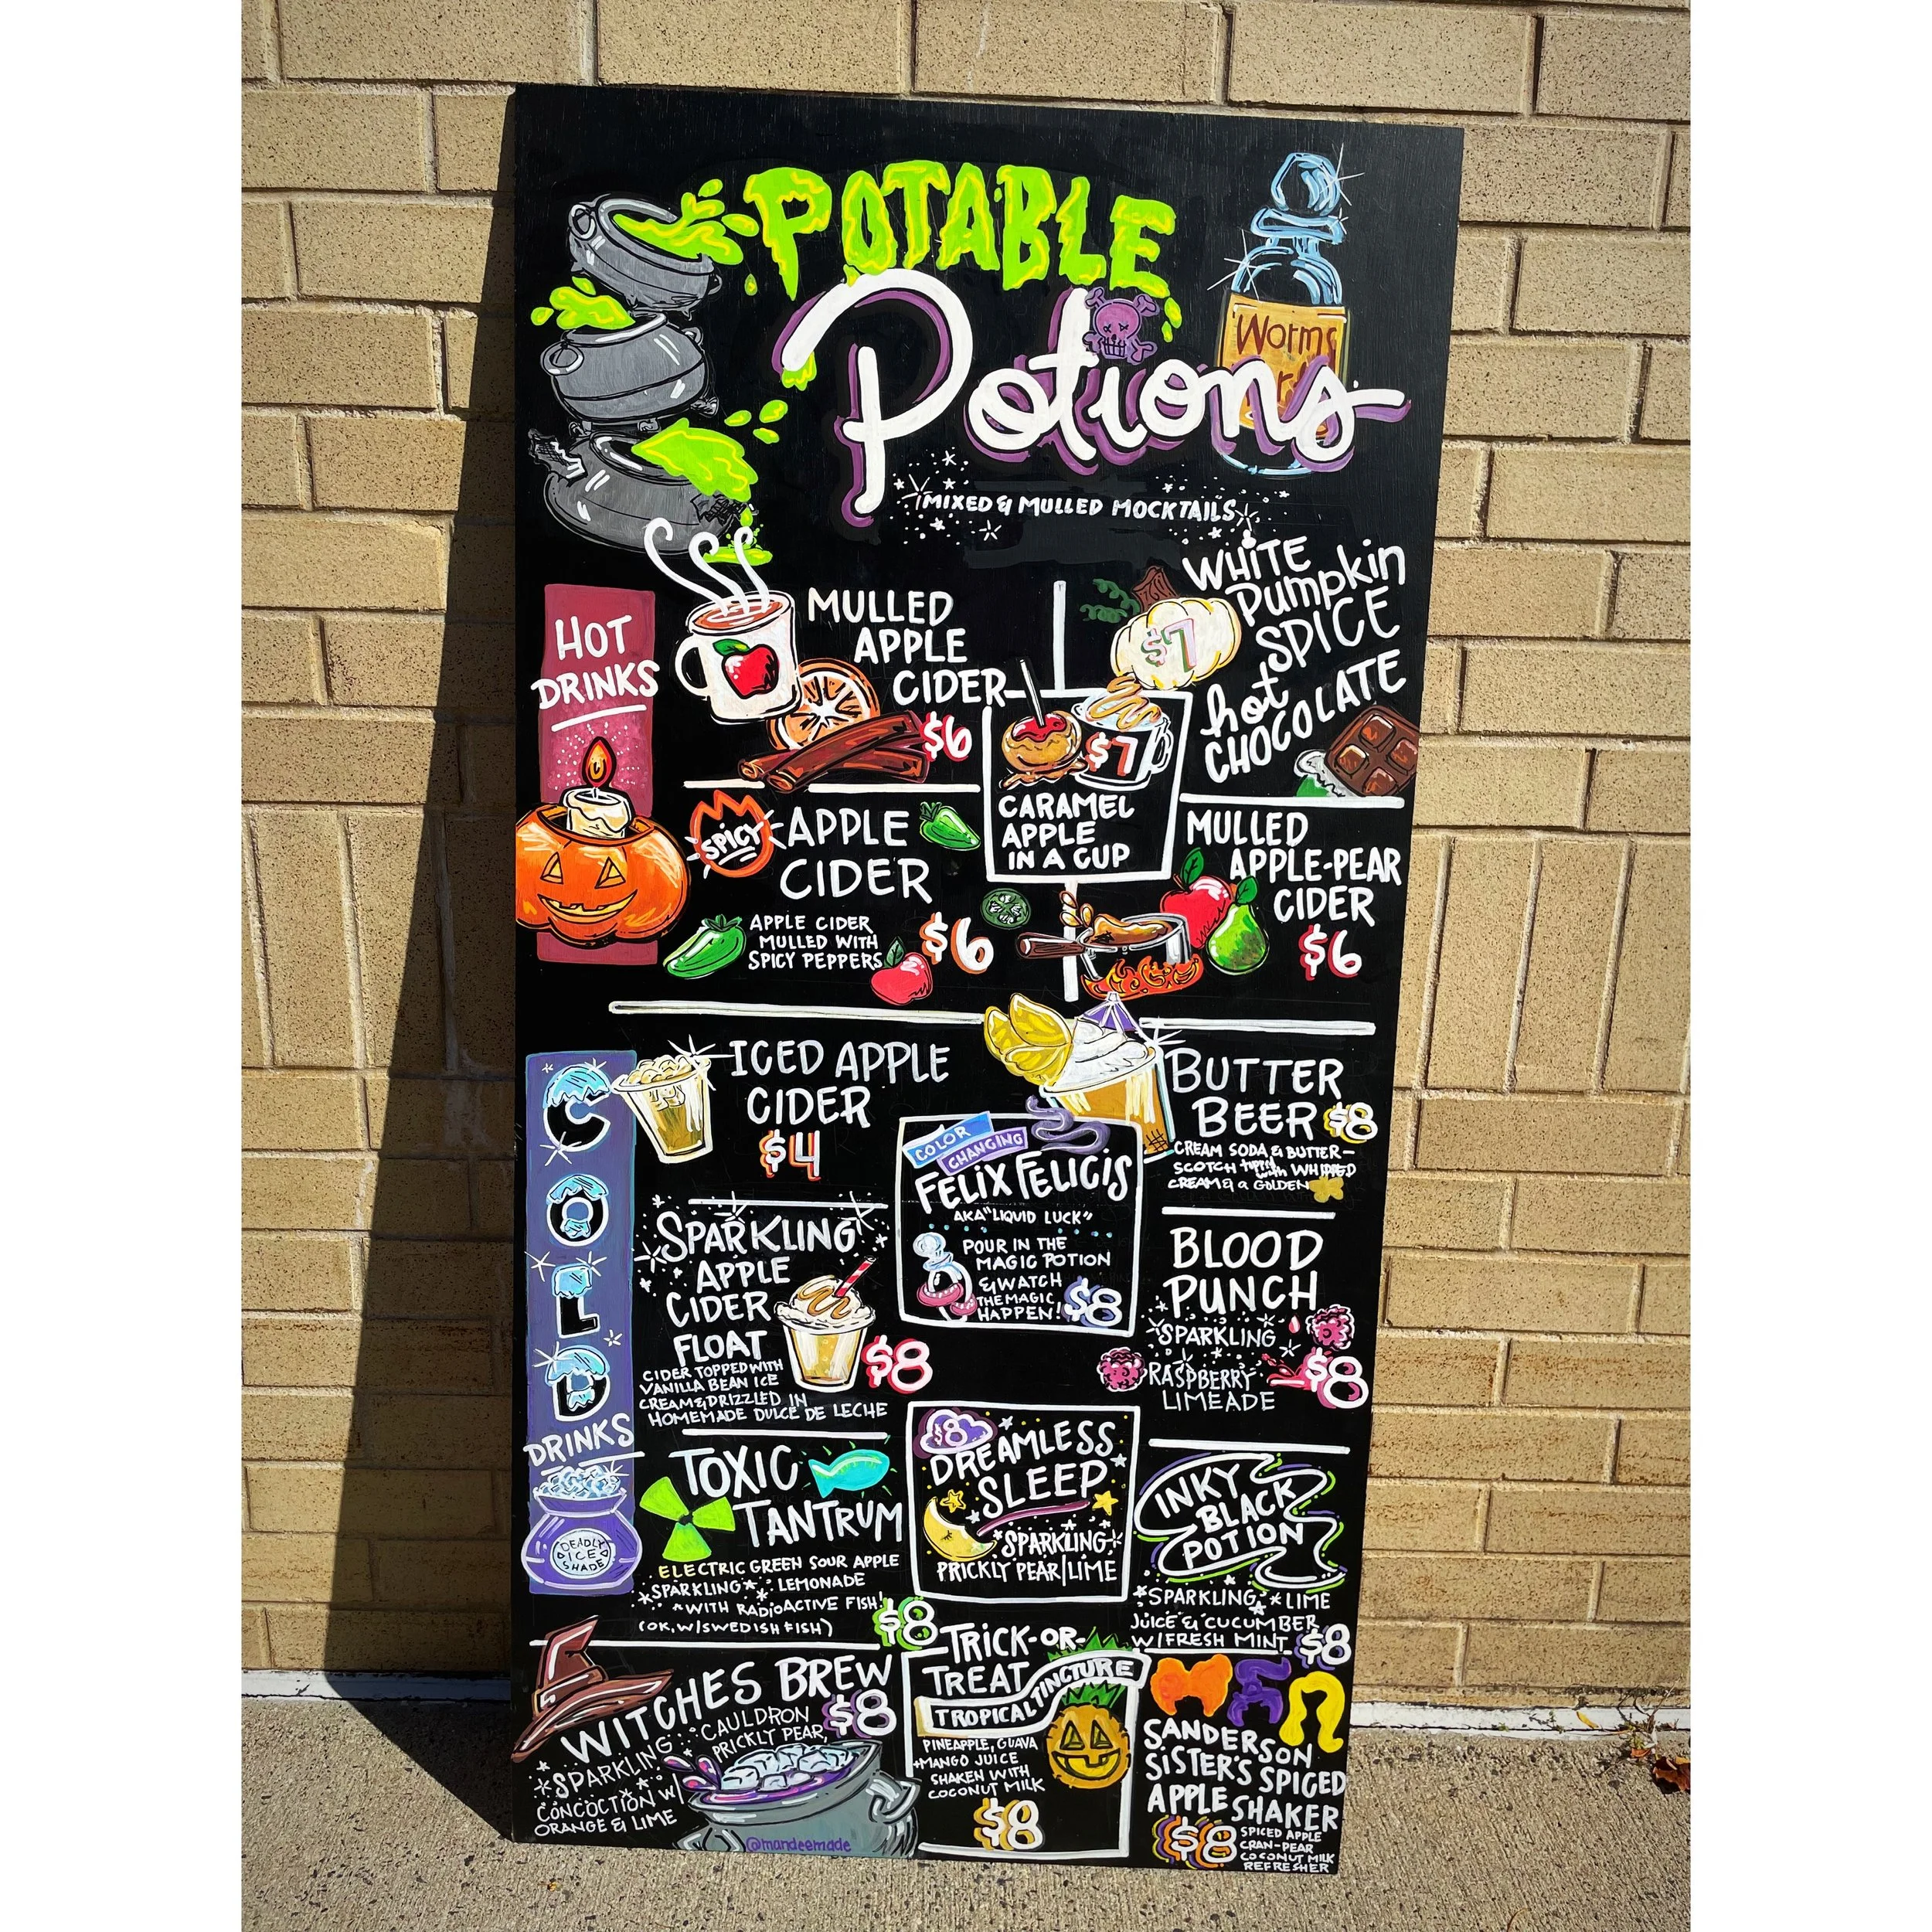 POTABLE
Potions
Worms
MIXED & MULLED MOCKTAILS
HOT
DRINKS
MULLED
APPLE
CIDER
$6
WHITE
Pumpkin
SPICE
hot
CHOCOLATE
$7
$7
CARAMEL
APPLE
IN A CUP
SPICY
APPLE
CIDER
APPLE CIDER
MULLED WITH
SPICY PEPPERS
$6
MULLED
APPLE-PEAR
CIDER
$6
COLD
DRINKS
DEADLY
ICE
SHADE
ICED APPLE
CIDER
$4
BUTTER
BEER $8
CREAM SODA & BUTTER-
SCOTCH topped with WHIPPED
CREAM & a GOLDEN
COLOR
CHANGING
FELIX FELICIS
AKA "LIQUID LUCK"
POUR IN THE
MAGIC POTION
& WATCH
THE MAGIC
HAPPEN! $8
SPARKLING
APPLE
CIDER
FLOAT
CIDER TOPPED WITH
VANILLA BEAN ICE
CREAM & DRIZZLED IN
HOMEMADE DULCE DE LECHE
$8
BLOOD
PUNCH
SPARKLING
RASPBERRY
LIMEADE
$8
TOXIC
TANTRUM
ELECTRIC GREEN SOUR APPLE
SPARKLING LEMONADE
WITH RADIOACTIVE FISH!
(OK, W/SWEDISH FISH)
$8
$8
DREAMLESS
SLEEP
SPARKLING
PRICKLY PEAR/LIME
INKY
BLACK
POTION
SPARKLING LIME
JUICE & CUCUMBER
W/FRESH MINT $8
WITCHES BREW
$8
SPARKLING CAULDRON
PRICKLY PEAR,
CONCOCTION W/
ORANGE & LIME
@mandeemade
TRICK-OR-
TREAT
TROPICAL TINCTURE
PINEAPPLE, GUAVA
+MANGO JUICE
SHAKEN WITH
COCONUT MILK
$8
SANDERSON
SISTER'S SPICED
APPLE SHAKER
$8
SPICED APPLE
CRAN-PEAR
COCONUT MILK
REFRESHER